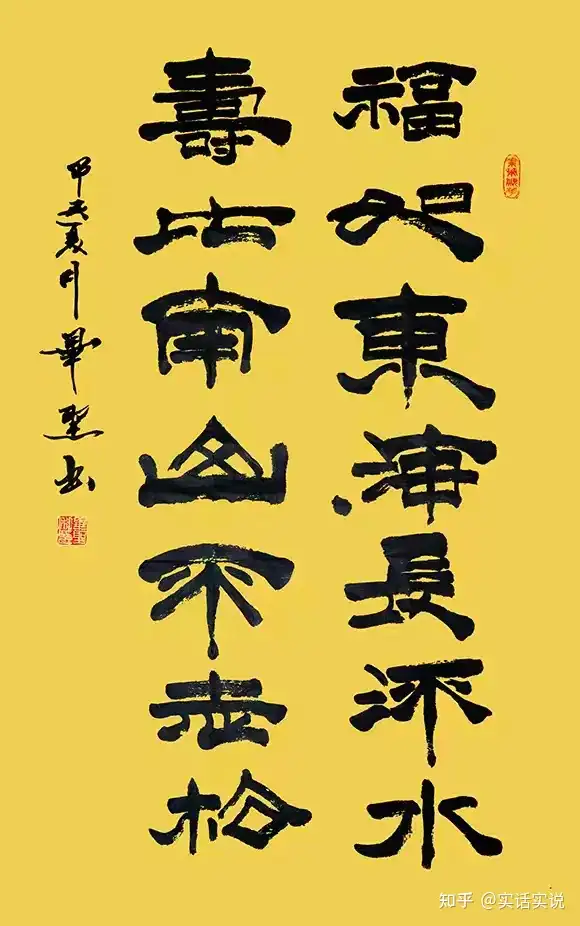 福如東海長流水
壽比南山不老松
夏月
知乎 @实话实说